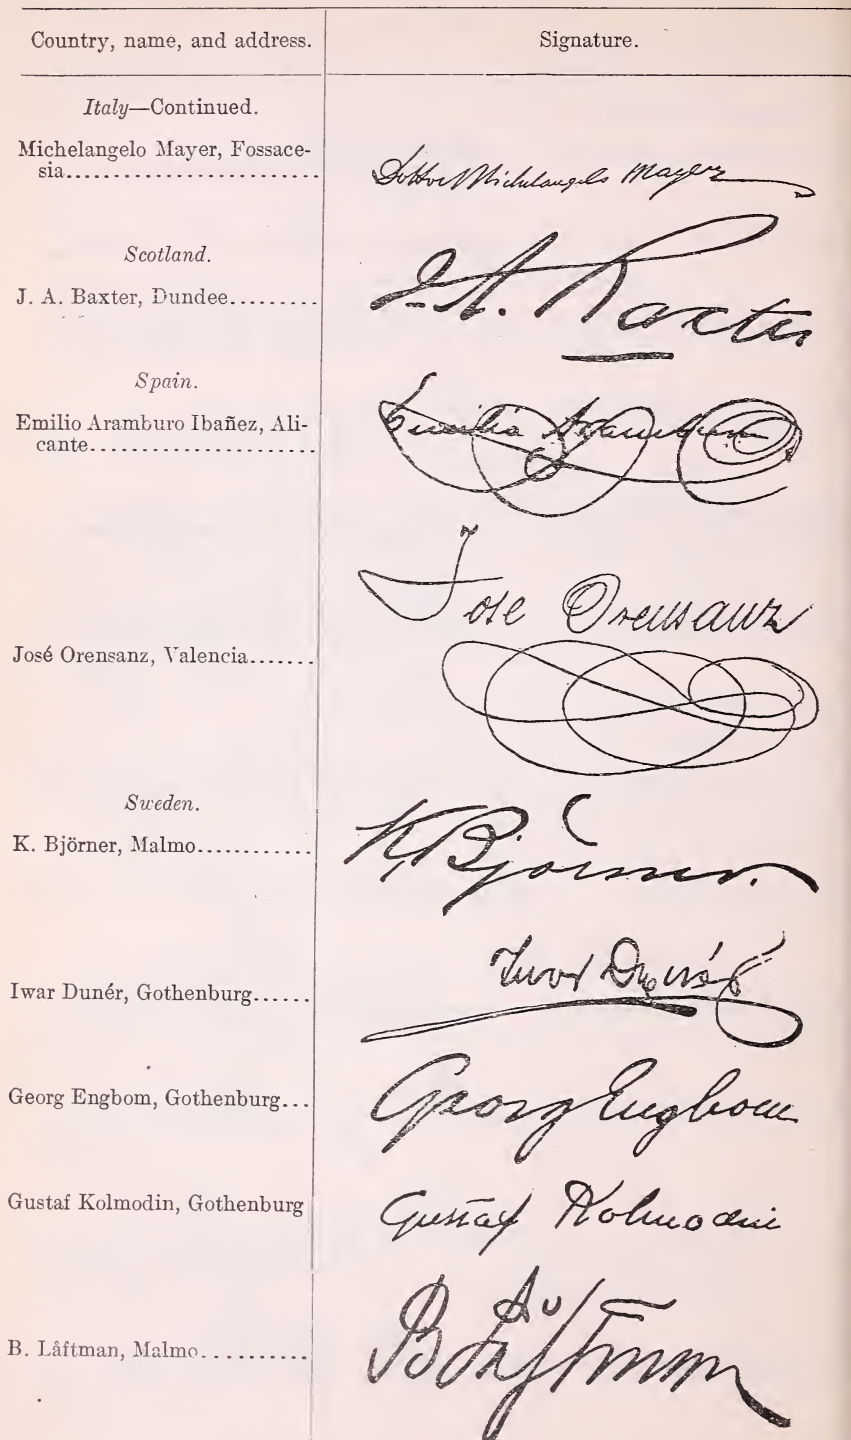 Country, name, and address. Signature.
Italy—Continued.
Michelangelo Mayer, Fossace-
sia........................ Dottor Michelangelo Mayer
Scotland.
J. A. Baxter, Dundee......... J. A. Baxter
Spain.
Emilio Aramburo Ibañez, Ali-
cante..................... Emilio Aramburo
Jose Orensanz
José Orensanz, Valencia.......
Sweden.
K. Björner, Malmo........... K. Björner.
Iwar Dunér, Gothenburg...... Iwar Dunér
Georg Engbom, Gothenburg... Georg Engbom
Gustaf Kolmodin, Gothenburg Gustaf Kolmodin
B. Låftman, Malmo.......... B Låftman